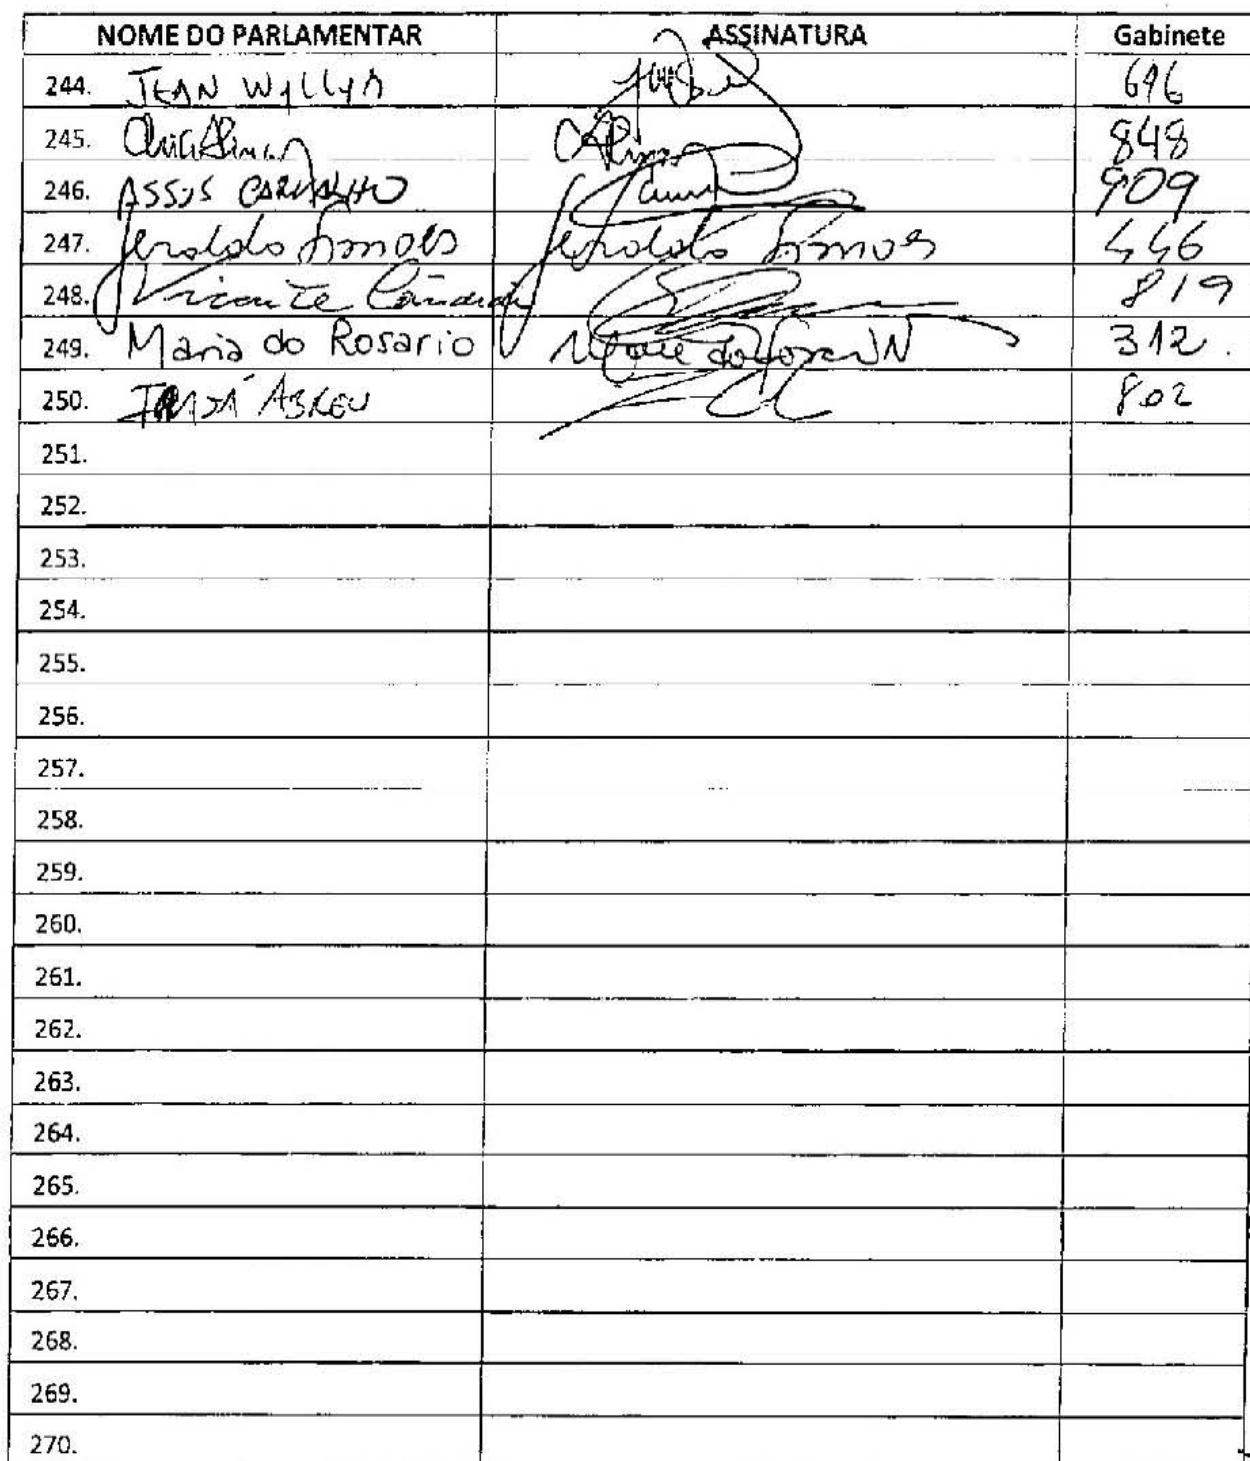 NOME DO PARLAMENTAR ASSINATURA Gabinete
244. JEAN WYLLYS 646
245. Chico Alencar 848
246. ASSIS CARVALHO 909
247. Geraldo Simões Geraldo Simões 446
248. Vicente Candido 819
249. Maria do Rosario 312.
250. ABREU 802
251.
252.
253.
254.
255.
256.
257.
258.
259.
260.
261.
262.
263.
264.
265.
266.
267.
268.
269.
270.